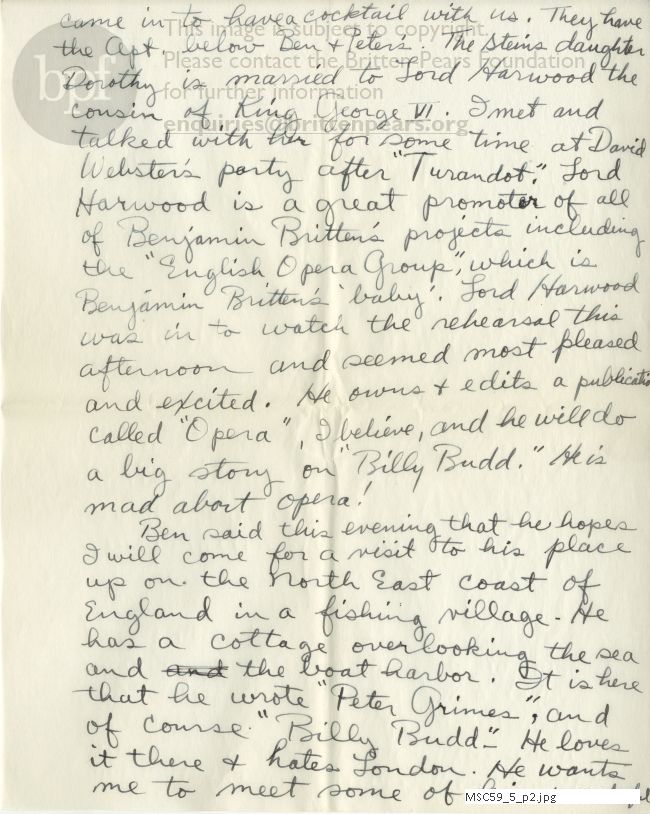 came in to have a cocktail with us. They have
the Apt. below Ben & Peter's. The Steins daughter
Dorothy is married to Lord Harwood the
cousin of King George VI. I met and
talked with her for some time at David
Webster's party after "Turandot." Lord
Harwood is a great promoter of all
of Benjamin Britten's projects including
the "English Opera Group", which is
Benjamin Britten's 'baby'. Lord Harwood
was in to watch the rehearsal this
afternoon and seemed most pleased
and excited. He owns & edits a publicatio
called "Opera", I believe, and he will do
a big story on "Billy Budd." He is
mad abort opera!
Ben said this evening that he hopes
I will come for a visit to his place
up on the North East coast of
England in a fishing village. He
has a cottage overlooking the sea
and and the boat harbor. It is here
that he wrote "Peter Grimes", and
of course "Billy Budd." He loves
it there & hates London. He wants
me to meet some of
bpf
This image is subject to copyright.
Please contact the Britten-Pears Foundation
for further information
enquiries@brittenpears.org
MSC59_5_p2.jpg